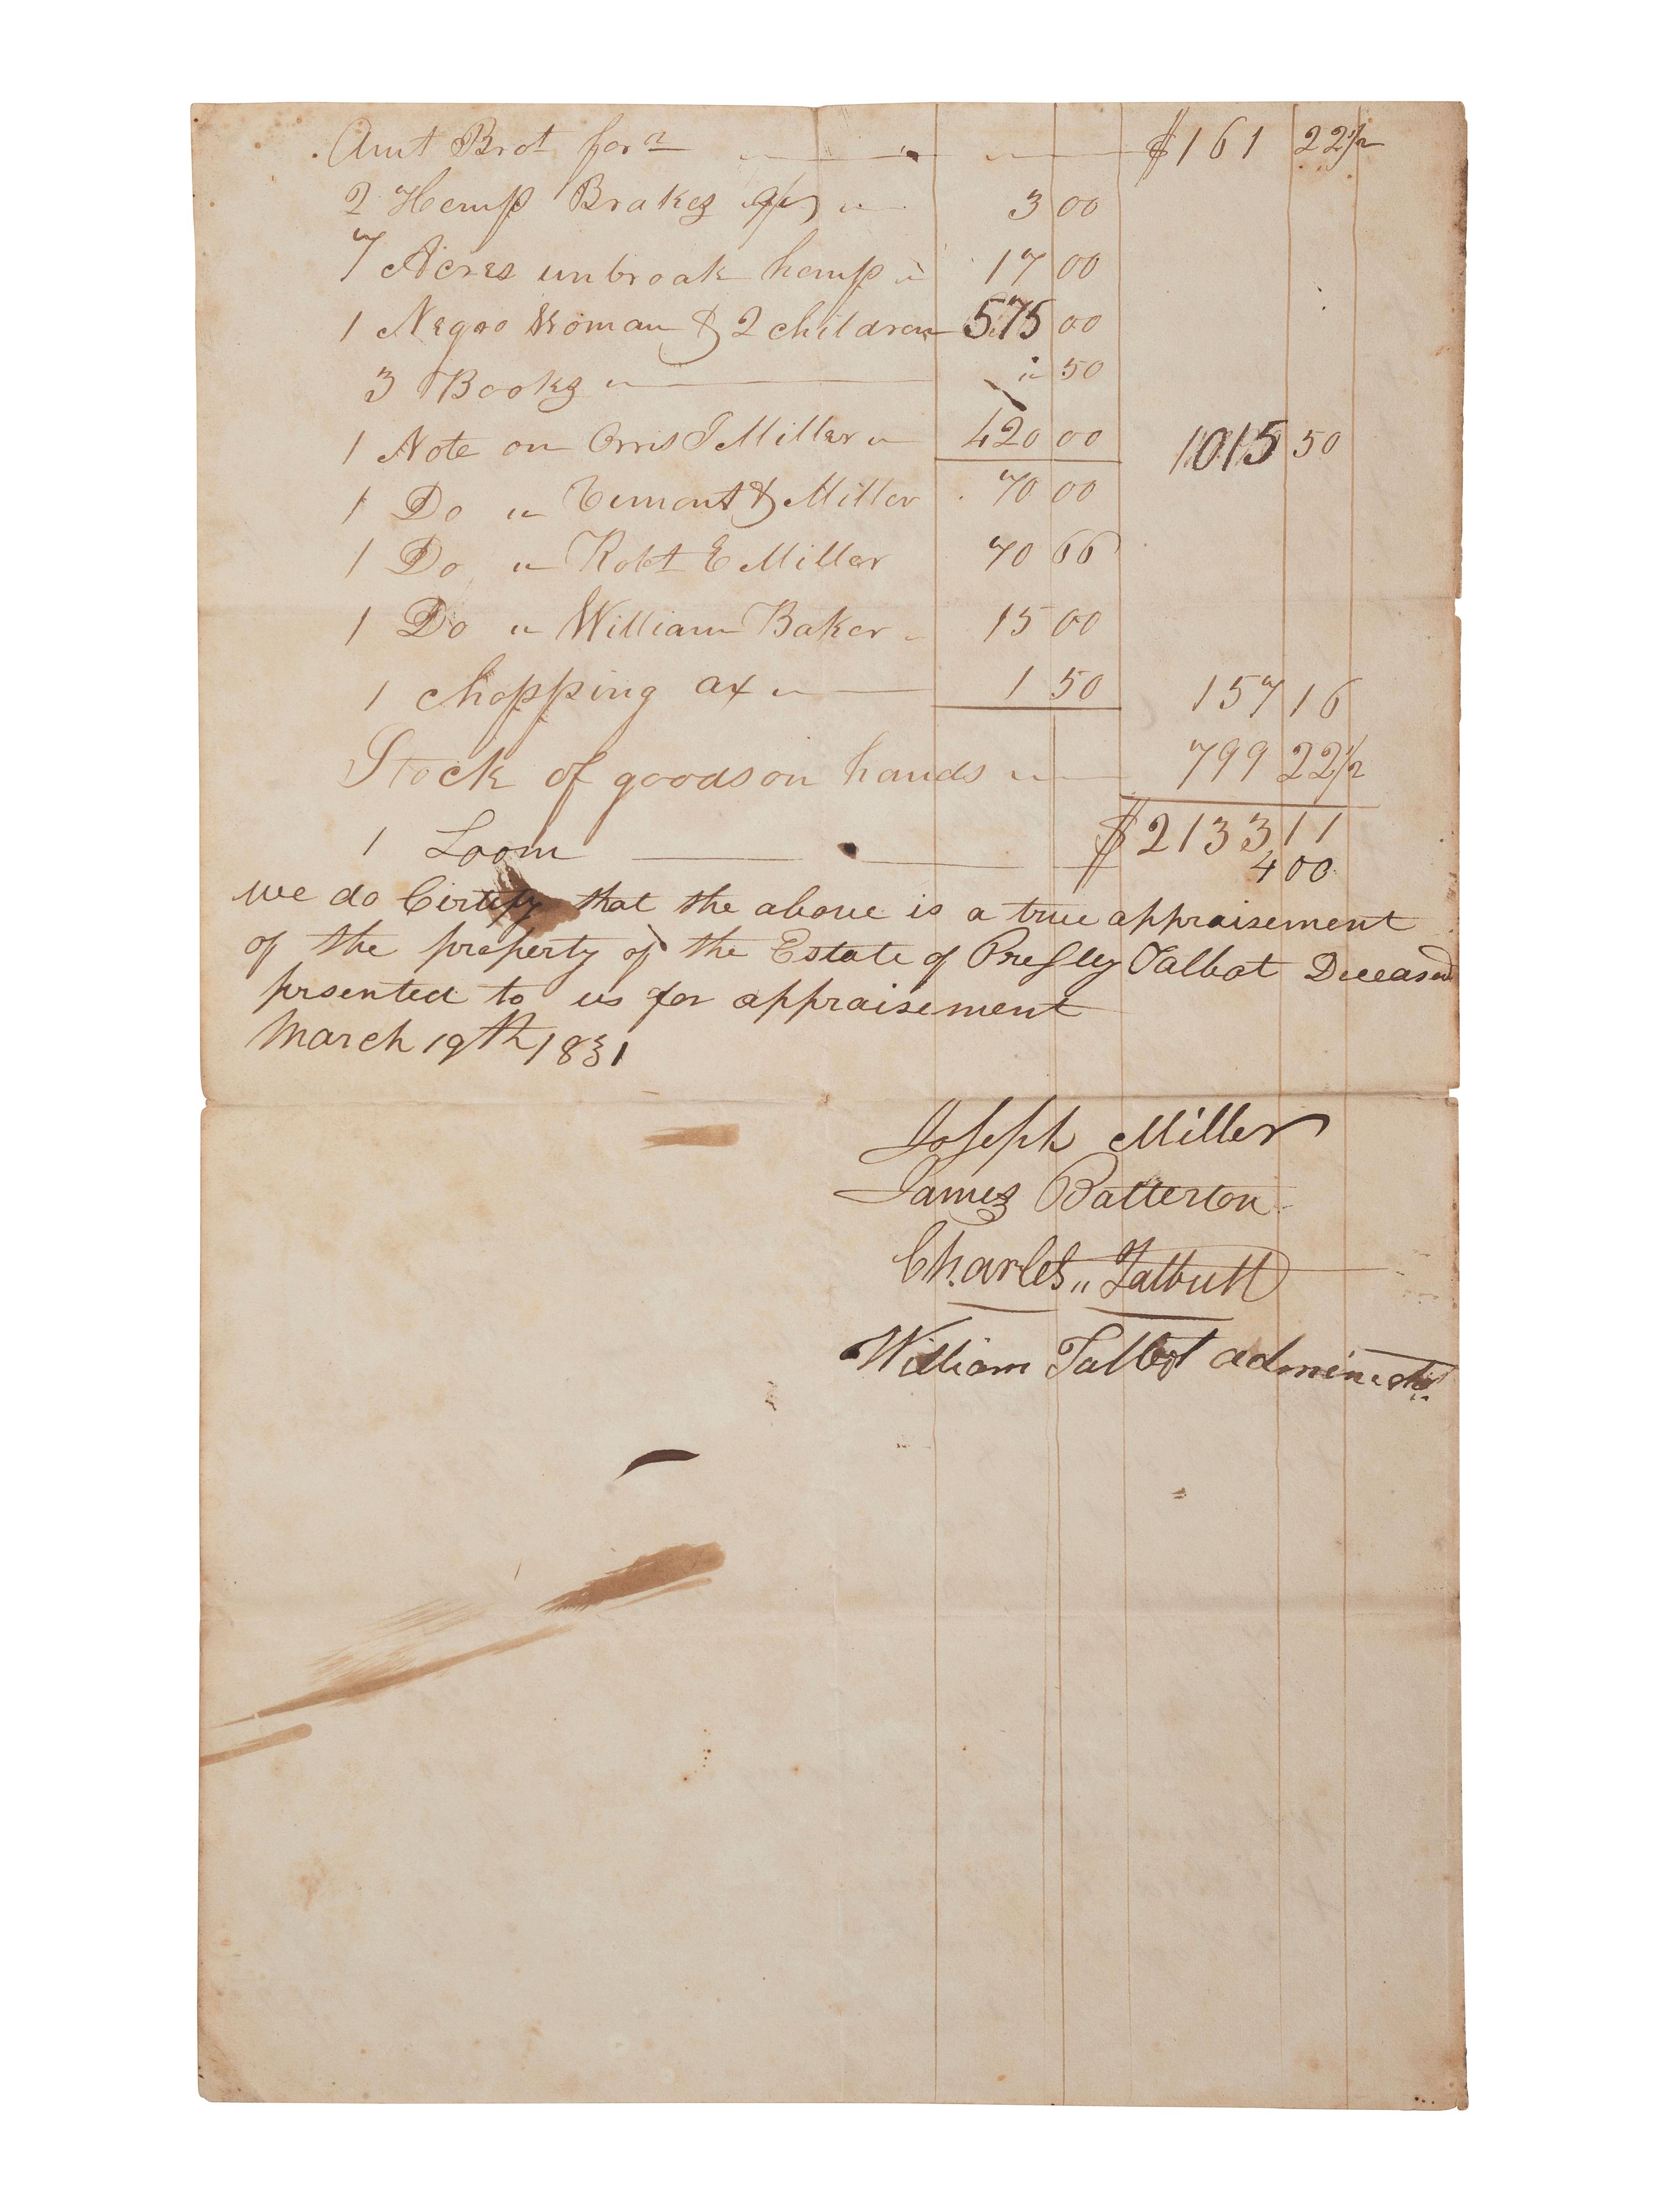 Amt Brot ford $161 22½
2 Hemp Brakes 3 00
7 Acres unbroak hemp 17 00
1 Negro Woman & 2 children 575 00
3 Books 50
1 Note on Orris Miller 420 00 1015 50
1 Do " & Miller 70 00
1 Do " Robt E Miller 70 66
1 Do " William Baker 15 00
1 chopping ax 1 50 157 16
Stock of goods on hands 799 22½
$2133 11
1 Loom 4 00
we do Certify that the above is a true appraisement
of the property of the Estate of Presley Talbot Deceased
prsented to us for appraisement
March 19th 1831
Joseph Miller
James Batterton
Charles Talbutt
William Talbot